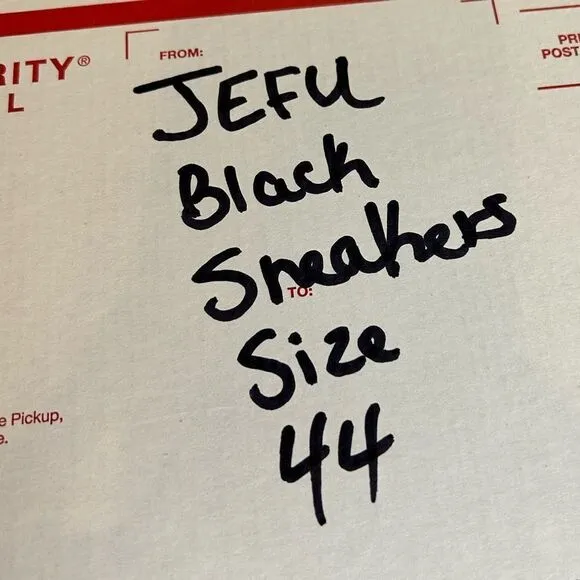 RITY®
L
FROM:
PRI
POST
JEFU
Black
Sneakers
TO:
Size
44
e Pickup,
e.